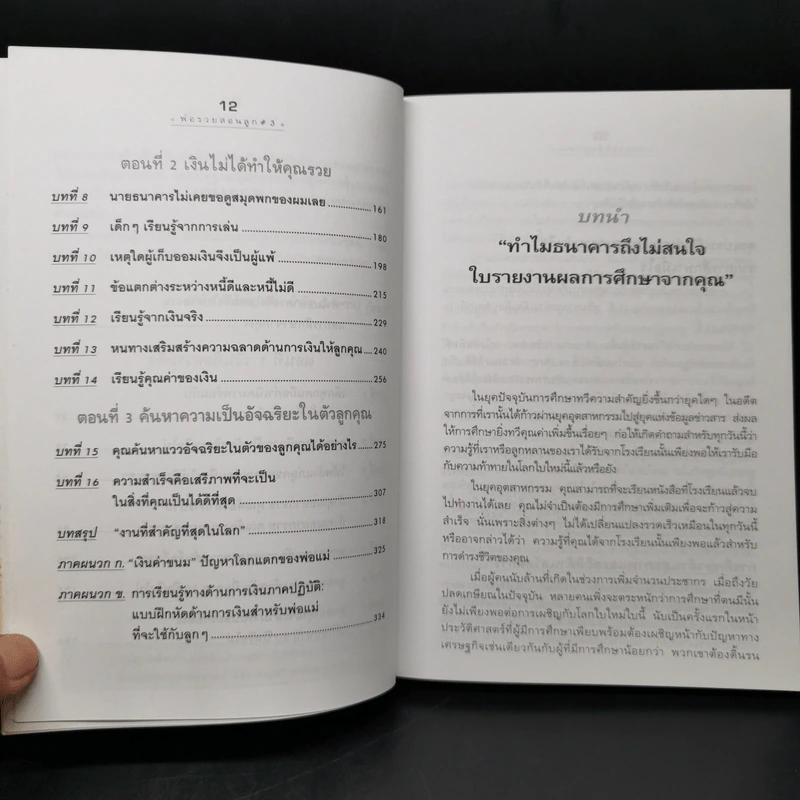 12
พ่อรวยสอนลูก # 3
ตอนที่ 2 เงินไม่ได้ทำให้คุณรวย
บทที่ 8 นายธนาคารไม่เคยขอดูสมุดพกของผมเลย 161
บทที่ 9 เด็กๆ เรียนรู้จากการเล่น 180
บทที่ 10 เหตุใดผู้เก็บออมเงินจึงเป็นผู้แพ้ 198
บทที่ 11 ข้อแตกต่างระหว่างหนี้ดีและหนี้ไม่ดี 215
บทที่ 12 เรียนรู้จากเงินจริง 229
บทที่ 13 หนทางเสริมสร้างความฉลาดด้านการเงินให้ลูกคุณ 240
บทที่ 14 เรียนรู้คุณค่าของเงิน 256
ตอนที่ 3 ค้นหาความเป็นอัจฉริยะในตัวลูกคุณ
บทที่ 15 คุณค้นหาแววอัจฉริยะในตัวของลูกคุณได้อย่างไร 275
บทที่ 16 ความสำเร็จคือเสรีภาพที่จะเป็น
ในสิ่งที่คุณเป็นได้ดีที่สุด 307
บทสรุป "งานที่สำคัญที่สุดในโลก" 318
ภาคผนวก ก. "เงินค่าขนม" ปัญหาโลกแตกของพ่อแม่ 325
ภาคผนวก ข. การเรียนรู้ทางด้านการเงินภาคปฏิบัติ:
แบบฝึกหัดด้านการเงินสำหรับพ่อแม่
ที่จะใช้กับลูกๆ 334
บทนำ
"ทำไมธนาคารถึงไม่สนใจ
ใบรายงานผลการศึกษาจากคุณ"
ในยุคปัจจุบันการศึกษาทวีความสำคัญยิ่งขึ้นกว่ายุคใดๆ ในอดีต
จากการที่เรานั้นได้ก้าวผ่านยุคอุตสาหกรรมไปสู่ยุคแห่งข้อมูลข่าวสาร ส่งผล
ให้การศึกษายิ่งทวีคุณค่าเพิ่มขึ้นเรื่อยๆ ก่อให้เกิดคำถามสำหรับทุกวันนี้ว่า
ความรู้ที่เราหรือลูกหลานของเราได้รับจากโรงเรียนนั้นเพียงพอให้เรารับมือ
กับความท้าทายในโลกใบใหม่นี้แล้วหรือยัง
ในยุคอุตสาหกรรม คุณสามารถที่จะเรียนหนังสือที่โรงเรียนแล้วจบ
ไปทำงานได้เลย คุณไม่จำเป็นต้องมีการศึกษาเพิ่มเติมเพื่อจะก้าวสู่ความ
สำเร็จ นั่นเพราะสิ่งต่างๆ ไม่ได้เปลี่ยนแปลงรวดเร็วเหมือนในทุกวันนี้
หรืออาจกล่าวได้ว่า ความรู้ที่คุณได้จากโรงเรียนนั้นเพียงพอแล้วสำหรับ
การดำรงชีวิตของคุณ
เมื่อผู้คนนับล้านที่เกิดในช่วงการเพิ่มจำนวนประชากร เมื่อถึงวัย
ปลดเกษียณในปัจจุบัน หลายคนเพิ่งจะตระหนักว่าการศึกษาที่ตนมีนั้น
ยังไม่เพียงพอต่อการเผชิญกับโลกใบใหม่ใบนี้ นับเป็นครั้งแรกในหน้า
ประวัติศาสตร์ที่ผู้มีการศึกษาเพียบพร้อมต้องเผชิญหน้ากับปัญหาทาง
เศรษฐกิจเช่นเดียวกันกับผู้ที่มีการศึกษาน้อยกว่า พวกเขาต้องดิ้นรน